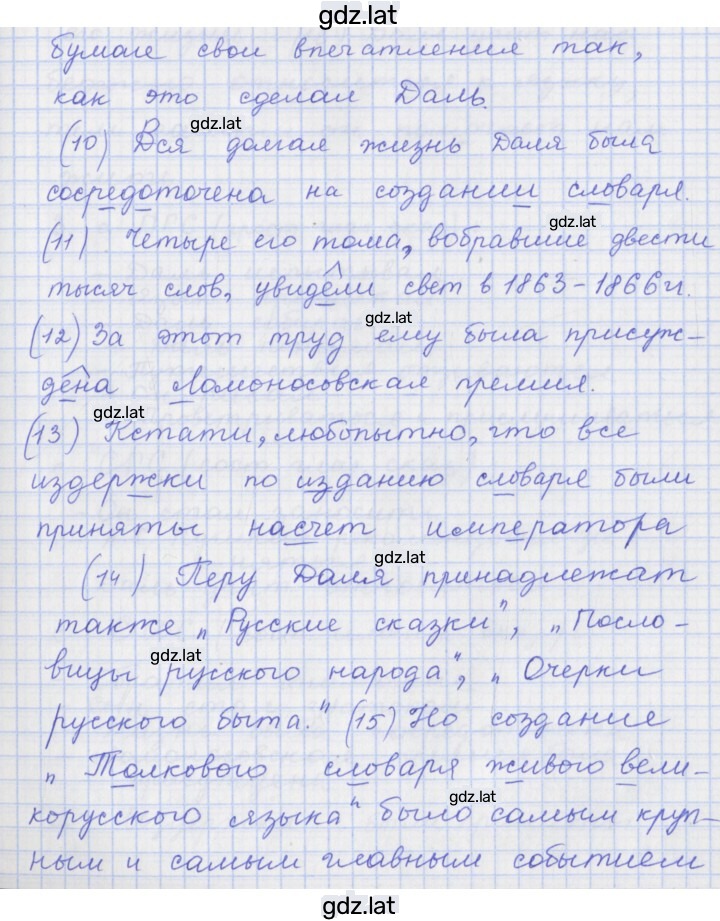 gdz.lat
бумаге свои впечатления так,
как это сделал Даль.
gdz.lat
(10) Вся долгая жизнь Даля была
сосредоточена на создании словаря.
gdz.lat
(11) Четыре его тома, вобравшие двести
тысяч слов, увидели свет в 1863-1866 гг.
gdz.lat
(12) За этот труд ему была присуж-
дена Ломоносовская премия.
gdz.lat
(13) Кстати, любопытно, что все
издержки по изданию словаря были
приняты насчет императора
gdz.lat
(14) Перу Даля принадлежат
также „Русские сказки", „Посло-
gdz.lat
вицы русского народа", „Очерки
русского быта." (15) Но создание
„Толкового словаря живого вели-
gdz.lat
корусского языка" было самым круп-
ным и самым главным событием
gdz.lat